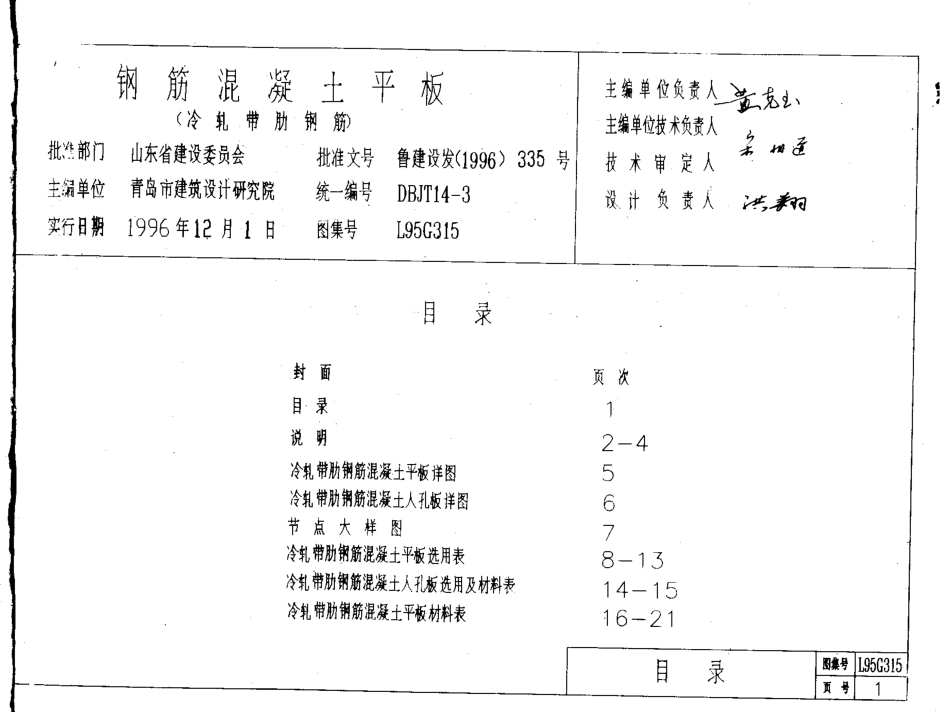 钢筋混凝土平板
（冷轧带肋钢筋）
批准部门 山东省建设委员会 批准文号 鲁建设发(1996) 335 号
主编单位 青岛市建筑设计研究院 统一编号 DBJT14-3
实行日期 1996年12月1日 图集号 L95G315
主编单位负责人
主编单位技术负责人
技术审定人
设计负责人 洪翔
目 录
封面 页次
目录 1
说明 2-4
冷轧带肋钢筋混凝土平板详图 5
冷轧带肋钢筋混凝土人孔板详图 6
节点大样图 7
冷轧带肋钢筋混凝土平板选用表 8-13
冷轧带肋钢筋混凝土人孔板选用及材料表 14-15
冷轧带肋钢筋混凝土平板材料表 16-21
目 录 图集号 L95G315
页号 1